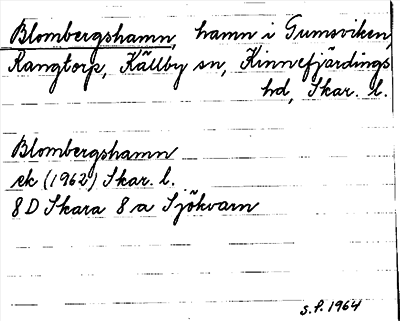 Blombergshamn, hamn i Gumsviken,
Rangtorp, Källby sn, Kinnefjärdings
hd, Skar. l.
Blombergshamn
ek (1962) Skar. l.
8 D Skara 8 a Sjökvarn
S.P. 1964